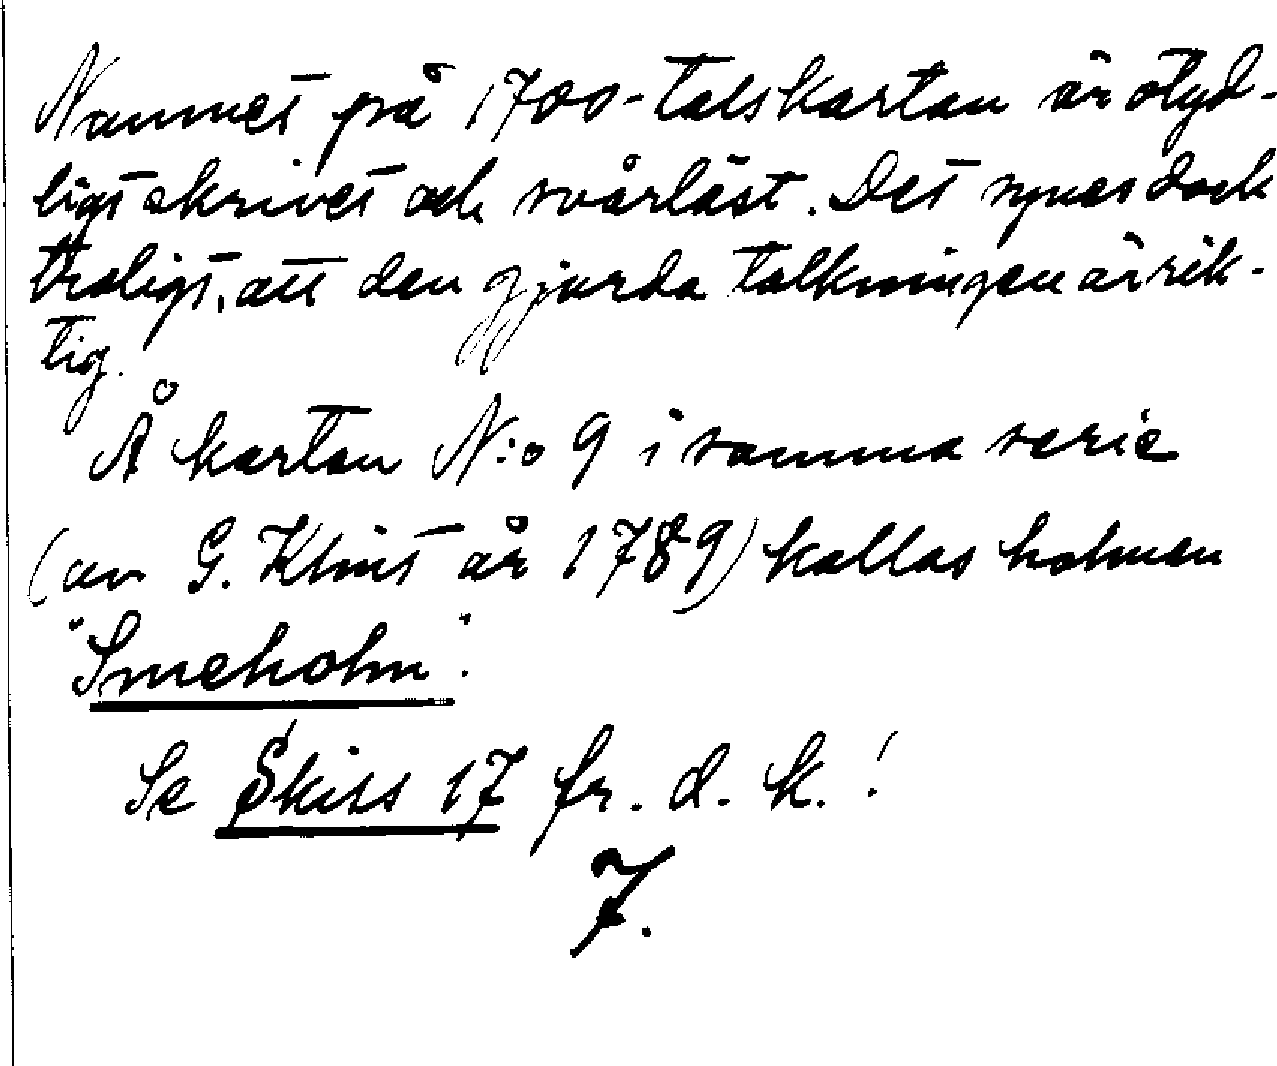 Namnet på 1700-talskartan är otyd-
ligt skrivet och svårläst. Det synes dock
troligt, att den gjorda tolkningen är rik-
tig.
Å kartan N:o 9 i samma serie
(av G. Klint år 1789) kallas holmen
"Smeholm".
Se Skiss 17 fr. d. k.!
7.